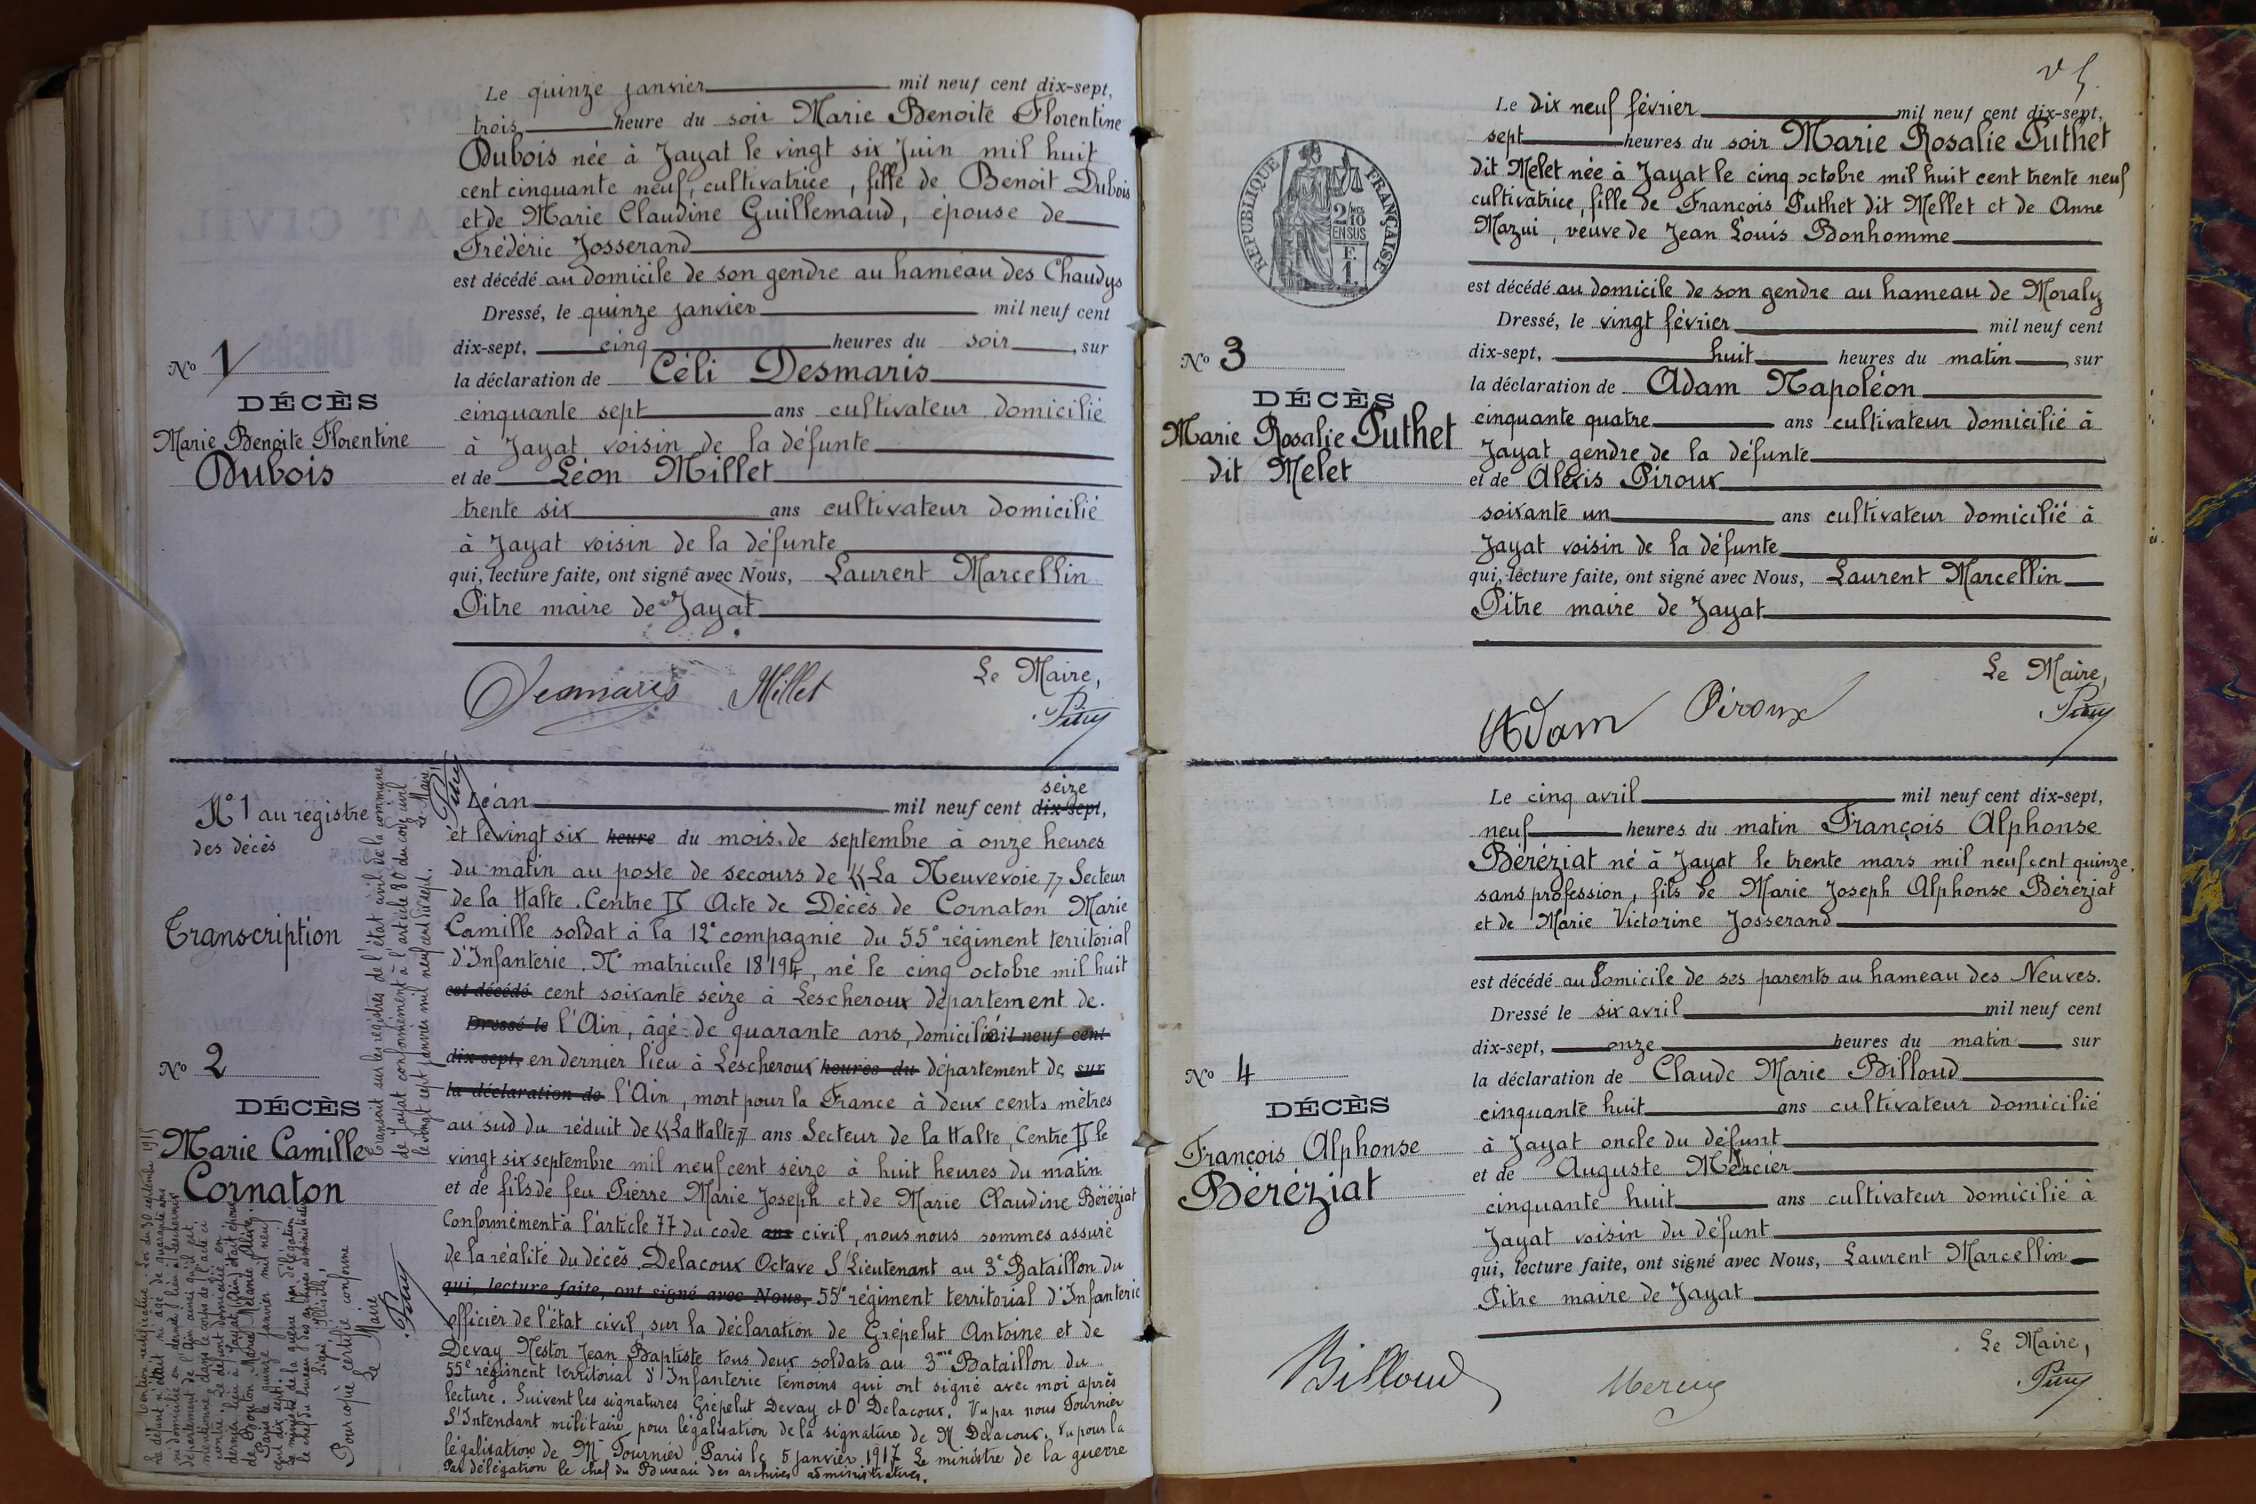 Le quinze janvier mil neuf cent dix-sept,
trois heure du soir Marie Benoite Florentine
Dubois née à Jayat le vingt six Juin mil huit
cent cinquante neuf, cultivatrice, fille de Benoit Dubois
et de Marie Claudine Guillemaud, épouse de
Frédéric Josserand
est décédé au domicile de son gendre au hameau des Chaudys
Dressé, le quinze janvier mil neuf cent
dix-sept, cinq heures du soir, sur
la déclaration de Céli Desmaris
cinquante sept ans cultivateur domicilié
à Jayat voisin de la défunte
et de Léon Millet
trente six ans cultivateur domicilié
à Jayat voisin de la défunte
qui, lecture faite, ont signé avec Nous, Laurent Marcellin
Pitre maire de Jayat
Le Maire,
Desmaris Millet Pitre
No 1
DÉCÈS
Marie Benoite Florentine
Dubois
No 1 au registre
des décès
Transcription
No 2
DÉCÈS
Marie Camille
Cornaton
Transcrit sur les registres de l'état civil de la commune
de Jayat conformément à l'article 80 du code civil
le vingt sept janvier mil neuf cent dix sept.
Le Maire,
Pitre
L'an mil neuf cent dix-sept, seize
et le vingt six heure du mois de septembre à onze heures
du matin au poste de secours de "La Neuvevoie" Secteur
de la Halte. Centre II Acte de Décès de Cornaton Marie
Camille soldat à la 12e compagnie du 55e régiment territorial
d'Infanterie. No matricule 18194, né le cinq octobre mil huit
est décédé cent soixante seize à Lescheroux département de
Dressé le l'Ain, âgé de quarante ans, domicilié mil neuf cent
dix-sept, en dernier lieu à Lescheroux heures du département de sur
la déclaration de l'Ain, mort pour la France à deux cents mètres
au sud du réduit de "La Halte" ans Secteur de la Halte, Centre II le
vingt six septembre mil neuf cent seize à huit heures du matin
et de fils de feu Pierre Marie Joseph et de Marie Claudine Béréziat
Conformément à l'article 77 du code ans civil, nous nous sommes assuré
de la réalité du décès. Delacoux Octave S/Lieutenant au 3e Bataillon du
qui, lecture faite, ont signé avec Nous, 55e régiment territorial d'Infanterie
officier de l'état civil, sur la déclaration de Grépelut Antoine et de
Devay Nestor Jean Baptiste tous deux soldats au 3me Bataillon du
55e régiment territorial d'Infanterie témoins qui ont signé avec moi après
lecture. Suivent les signatures Grépelut Devay et O Delacoux. Vu par nous Fournier
S/Intendant militaire pour légalisation de la signature de M Delacoux. Vu pour la
légalisation de Mr Fournier Paris le 5 janvier 1917 Le ministre de la guerre
Par délégation le chef du Bureau des archives administratives.
Mention rectificative: Loi du 30 septembre 1915
Le défunt n'était ni âgé de quarante ans
ni domicilié en dernier lieu à Lescheroux
département de l'Ain ainsi qu'il est
mentionné dans le corps de l'acte ci
contre. Le défunt domicilié en
dernier lieu à Jayat (Ain) était époux
de
Paris le quinze janvier mil neuf
cent dix sept.
Le ministre de la guerre par délégation
le chef du bureau des archives administratives
Signé
Pour copie certifié conforme
Le Maire
Pitre
RÉPUBLIQUE FRANÇAISE
2/10
EN SUS
F.
1
Le dix neuf février mil neuf cent dix-sept,
sept heures du soir Marie Rosalie Puthet
dit Melet née à Jayat le cinq octobre mil huit cent trente neuf
cultivatrice, fille de François Puthet dit Mellet et de Anne
Mazui, veuve de Jean Louis Bonhomme
est décédé au domicile de son gendre au hameau de Moraly
Dressé, le vingt février mil neuf cent
dix-sept, huit heures du matin, sur
la déclaration de Adam Napoléon
cinquante quatre ans cultivateur domicilié à
Jayat gendre de la défunte
et de Alexis Piroux
soixante un ans cultivateur domicilié à
Jayat voisin de la défunte
qui, lecture faite, ont signé avec Nous, Laurent Marcellin
Pitre maire de Jayat
Le Maire,
Adam Piroux Pitre
No 3
DÉCÈS
Marie Rosalie Puthet
dit Melet
Le cinq avril mil neuf cent dix-sept,
neuf heures du matin François Alphonse
Béréziat né à Jayat le trente mars mil neuf cent quinze.
sans profession, fils de Marie Joseph Alphonse Béréziat
et de Marie Victorine Josserand
est décédé au domicile de ses parents au hameau des Neuves.
Dressé le six avril mil neuf cent
dix-sept, onze heures du matin sur
la déclaration de Claude Marie Billoud
cinquante huit ans cultivateur domicilié
à Jayat oncle du défunt
et de Auguste Mercier
cinquante huit ans cultivateur domicilié à
Jayat voisin du défunt
qui, lecture faite, ont signé avec Nous, Laurent Marcellin
Pitre maire de Jayat
Le Maire,
Billoud Mercier Pitre
No 4
DÉCÈS
François Alphonse
Béréziat